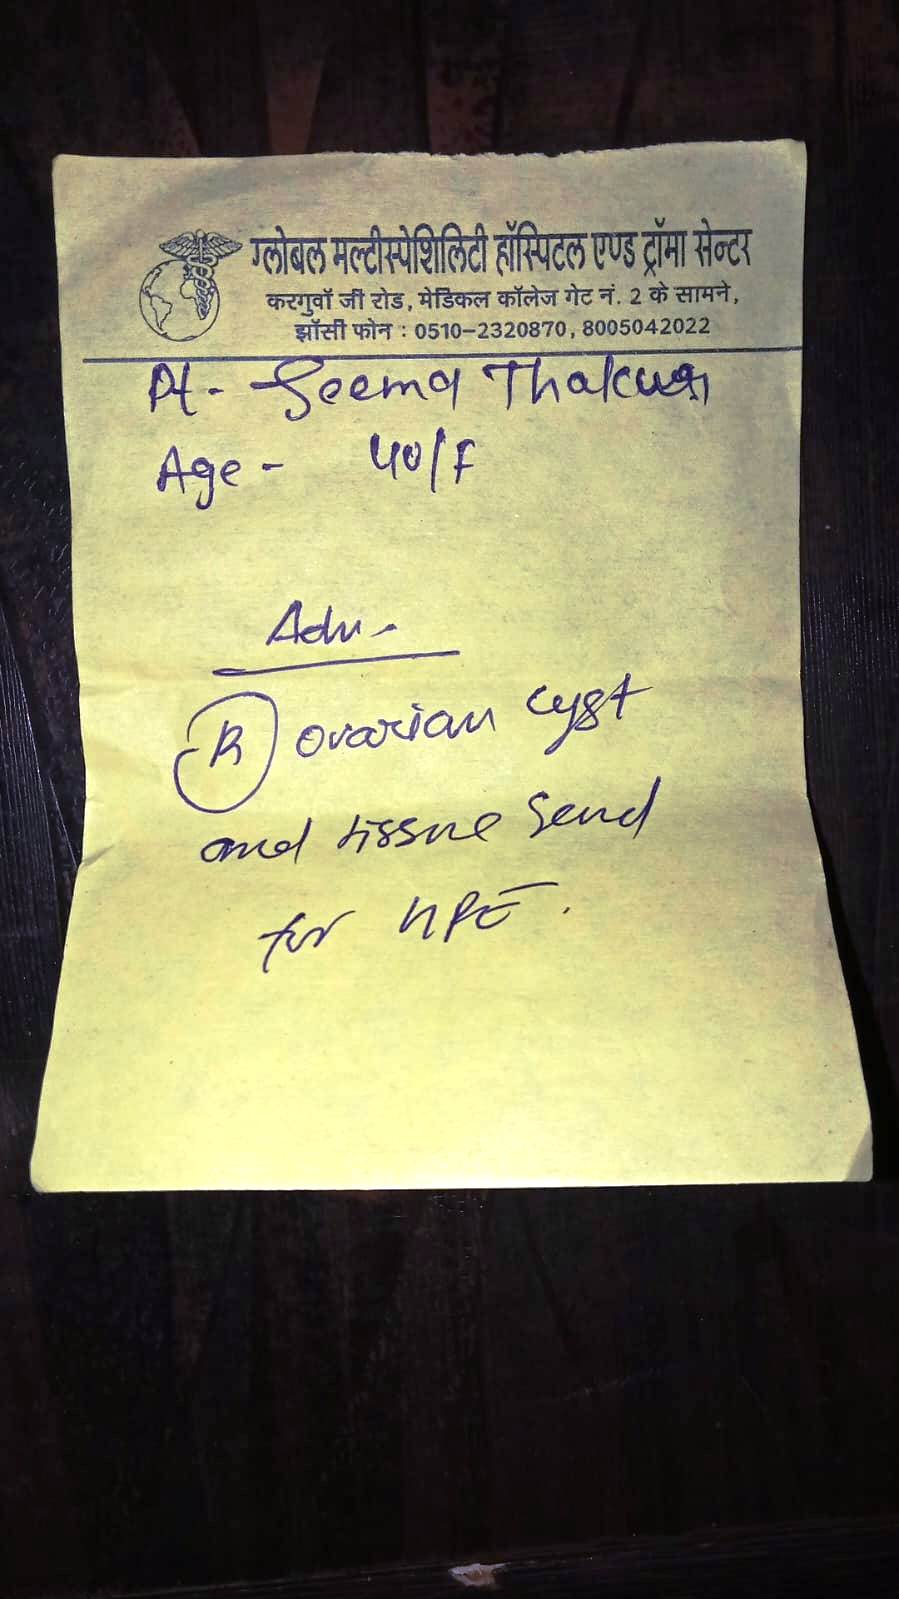 ग्लोबल मल्टीस्पेशिलिटी हॉस्पिटल एण्ड ट्रॉमा सेन्टर
करगुवॉ जी रोड, मेडिकल कॉलेज गेट नं. 2 के सामने,
झॉसी फोन : 0510-2320870, 8005042022
Pt- Seema Thakur
Age - 40/F
Adv -
R ovarian cyst
and tissue send
for HPE.